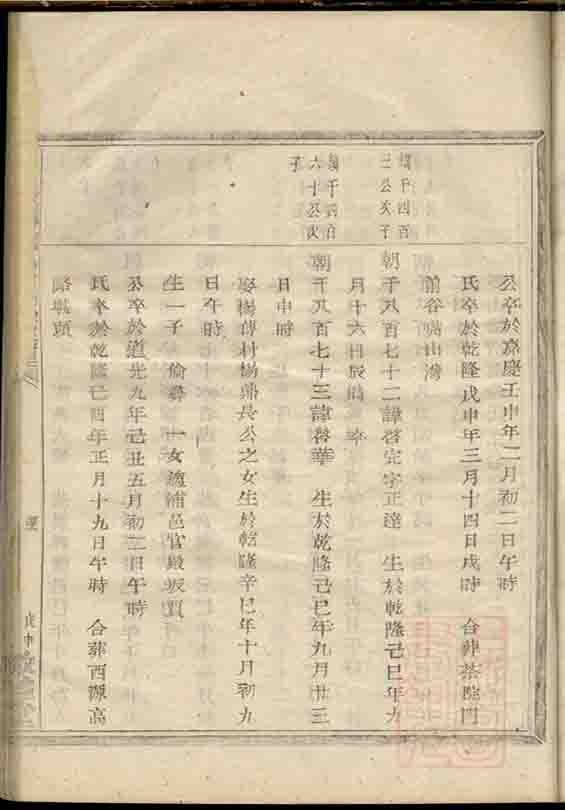 公卒於嘉慶壬申年二月初二日午時
氏卒於乾隆戊申年三月十四日戌時 合葬茶院門
前谷 山灣
四百
三公次子
朝千八百七十二諱啓完字正達 生於乾隆己巳年九
月十六日辰時 卒
千四百
六十公次
子
朝千八百七十三諱啓華 生於乾隆己巳年九月廿三
日申時
娶楊 村楊鼎長公之女生於乾隆辛巳年十月初九
日午時
生一子 一女適浦邑官殿坂賈
公卒於道光九年己丑五月初二日午時
氏卒於乾隆己酉年正月十九日午時 合葬西源高
路 頭
戊申